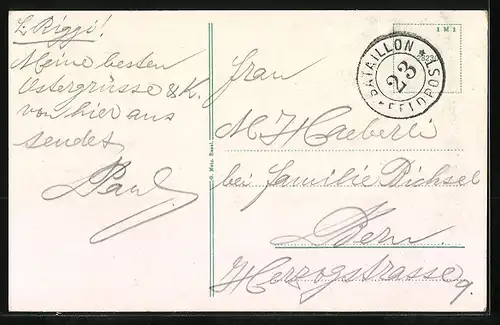 L. Riggi!
Meine besten
Ostergrüsse & K.
von hier aus
sendet
Paul.
Frau
M. Haeberli
bei Familie Pichsel
Bern.
Herzogstrasse 9.
BATAILLON
23
FELDPOST